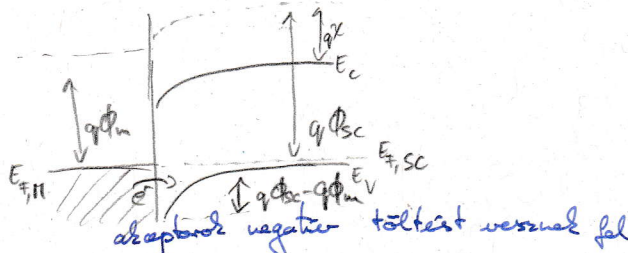 qχ
E_c
qΦ_m
qΦ_sc
E_F,M
E_F,SC
e⁻
E_V
qΦ_sc - qΦ_m
akceptorok negatív töltést vesznek fel